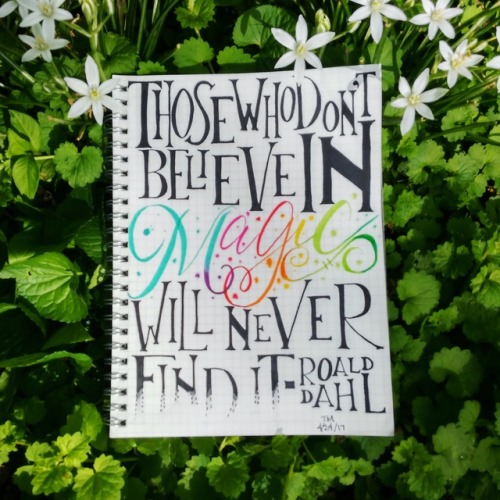 THOSE WHO DON'T
BELIEVE IN
Magic
WILL NEVER
FIND IT-ROALD
DAHL
TM
4/24/17